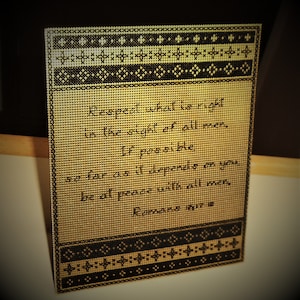 Respect what is right
in the sight of all men.
If possible,
so far as it depends on you,
be at peace with all men.
Romans